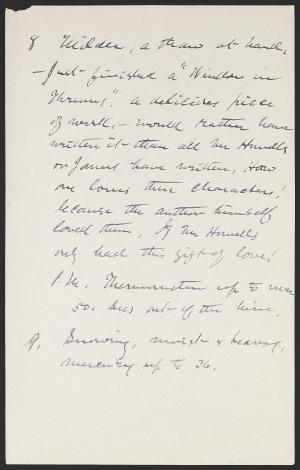 8 Milder, a thaw at hand,
- Just finished a "Window in
Thrums". a delicious piece
of work, - would rather have
written it than all Mr Howells
or James have written, How
one loves these characters!
because the author himself
loved them, If Mr Howells
only had this gift of love!
P.M. Thermometer up to near
50. bees out of the hive,
9, Snowing, moist & heavy,
mercury up to 36.